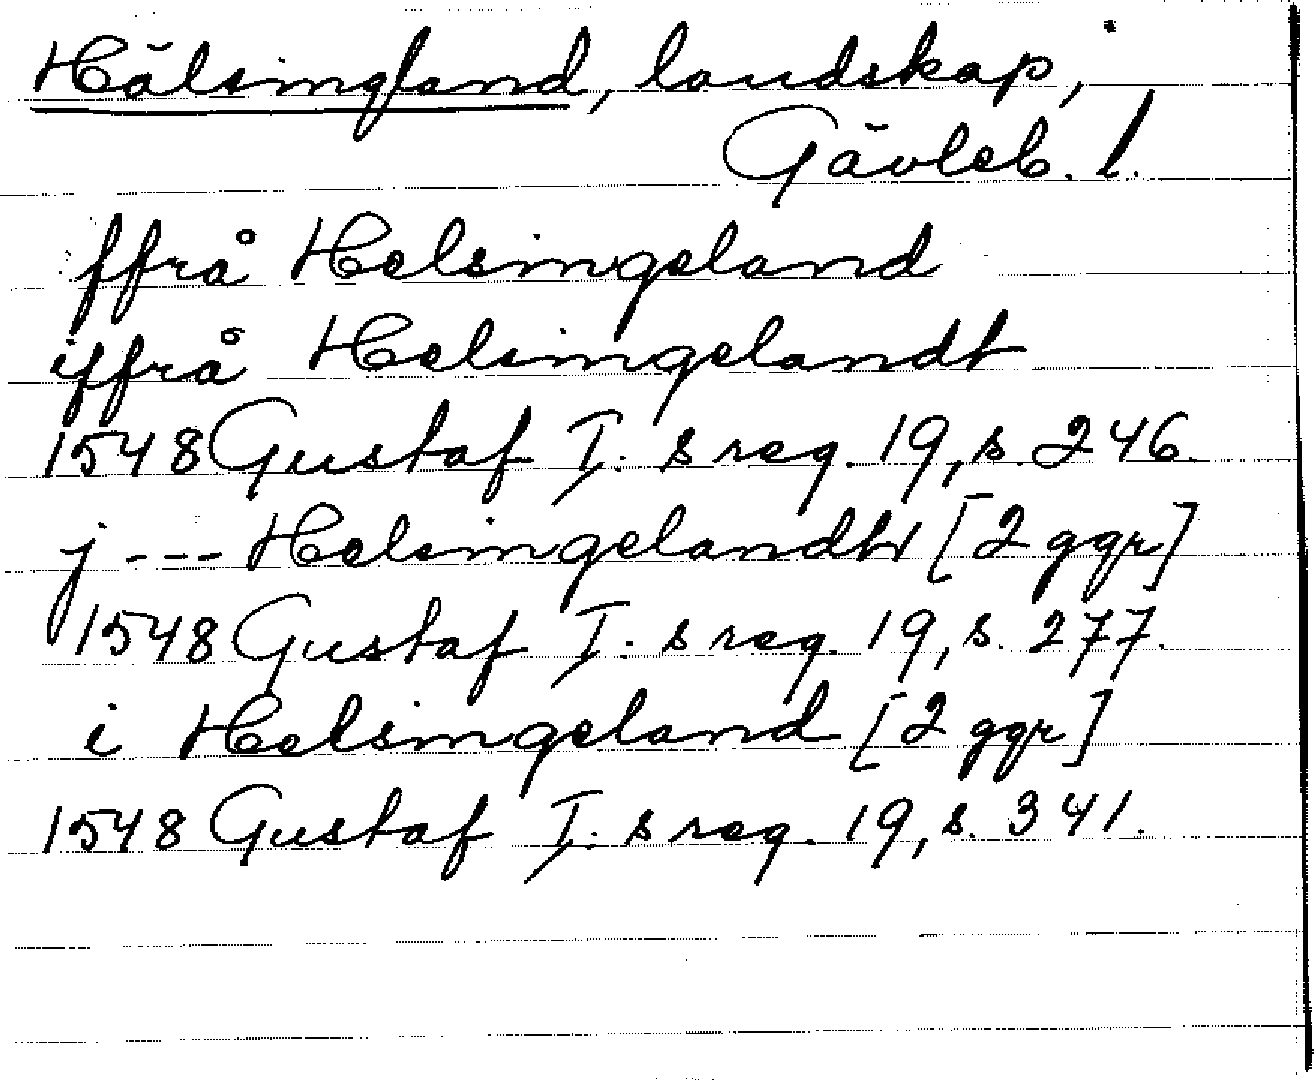 Hälsingland, landskap,
Gävleb. l.
ffrå Helsingeland
iffrå Helsingelandt
1548 Gustaf I:s reg. 19, s. 246.
j --- Helsingelandt [2 ggr]
1548 Gustaf I:s reg. 19, s. 277.
i Helsingeland [2 ggr]
1548 Gustaf I:s reg. 19, s. 341.